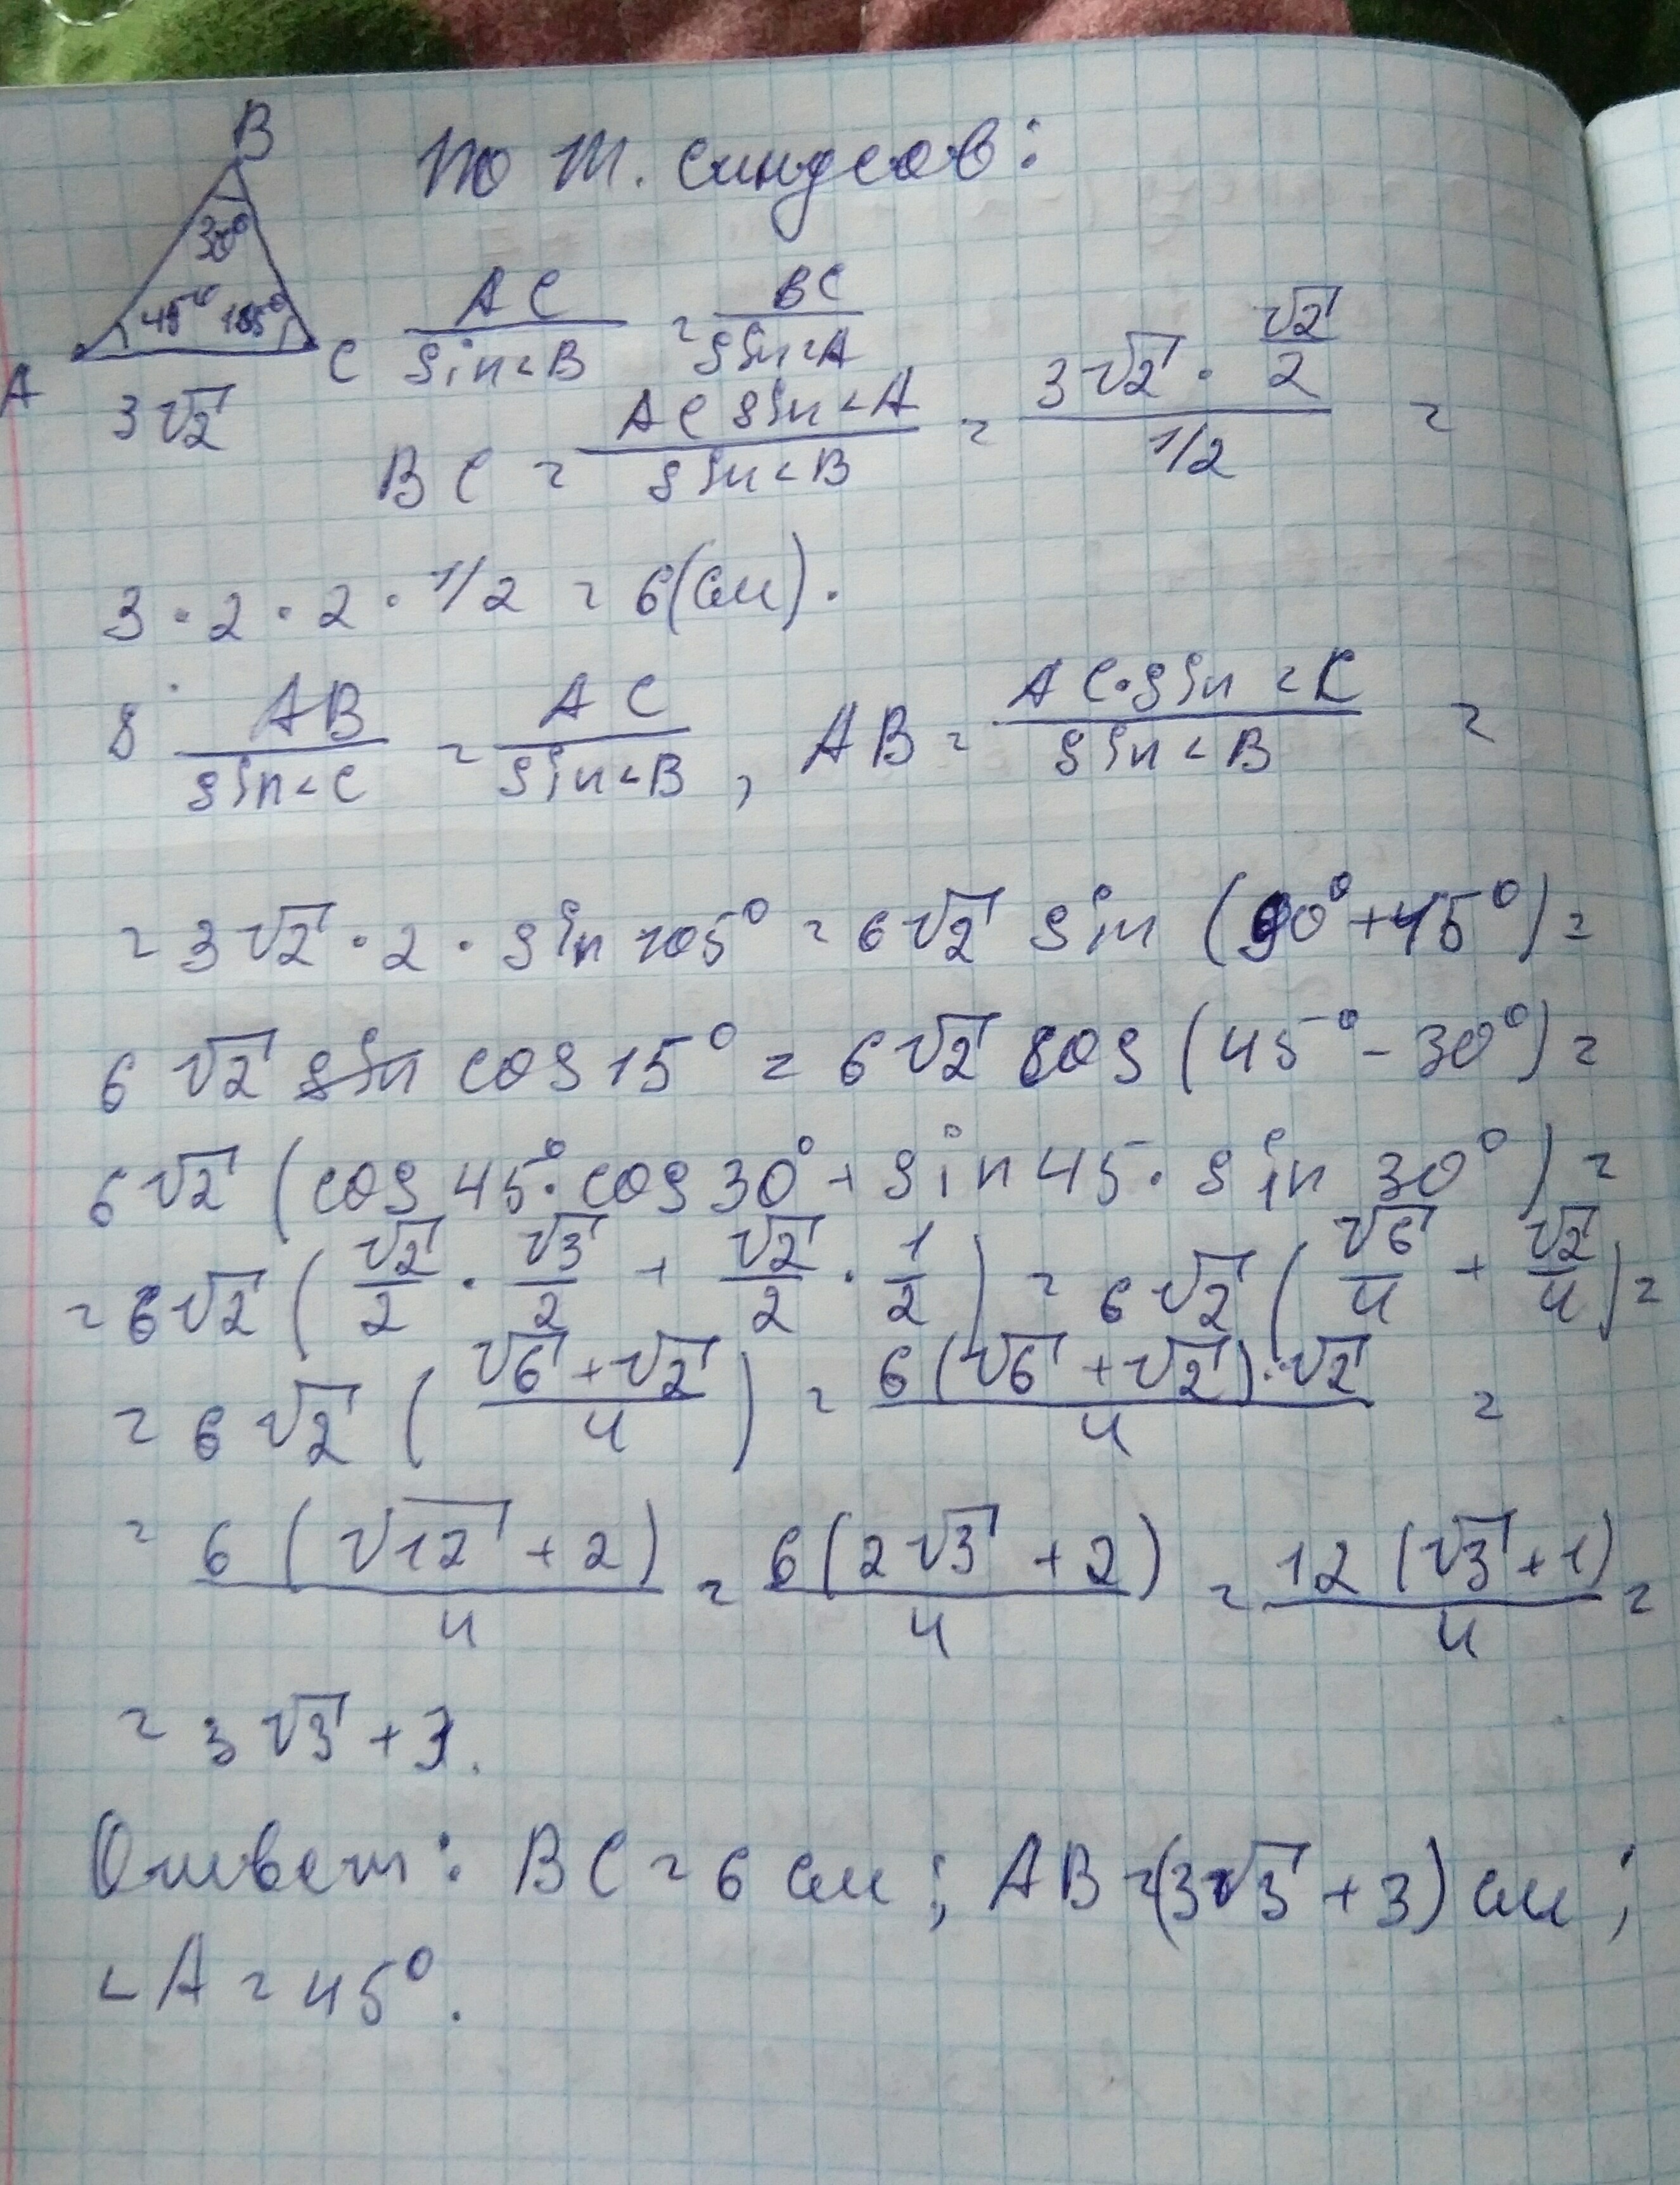 B
По т. синусов:
30°
45° 105°
A
C
3√2
AC/sin∠B = BC/sin∠A
BC = AC sin∠A / sin∠B = (3√2 · √2/2) / 1/2 =
3 · 2 · 2 · 1/2 = 6(см).
8 AB/sin∠C = AC/sin∠B, AB = AC·sin∠C / sin∠B =
= 3√2 · 2 · sin 105° = 6√2 sin (90° + 45°) =
6√2 cos 15° = 6√2 cos (45° - 30°) =
6√2 (cos 45° · cos 30° + sin 45 · sin 30°) =
= 6√2 (√2/2 · √3/2 + √2/2 · 1/2) = 6√2 (√6/4 + √2/4) =
= 6√2 ((√6 + √2)/4) = 6(√6 + √2)·√2 / 4 =
= 6(√12 + 2)/4 = 6(2√3 + 2)/4 = 12(√3 + 1)/4 =
= 3√3 + 3.
Ответ: BC = 6 см; AB = (3√3 + 3) см;
∠A = 45°.